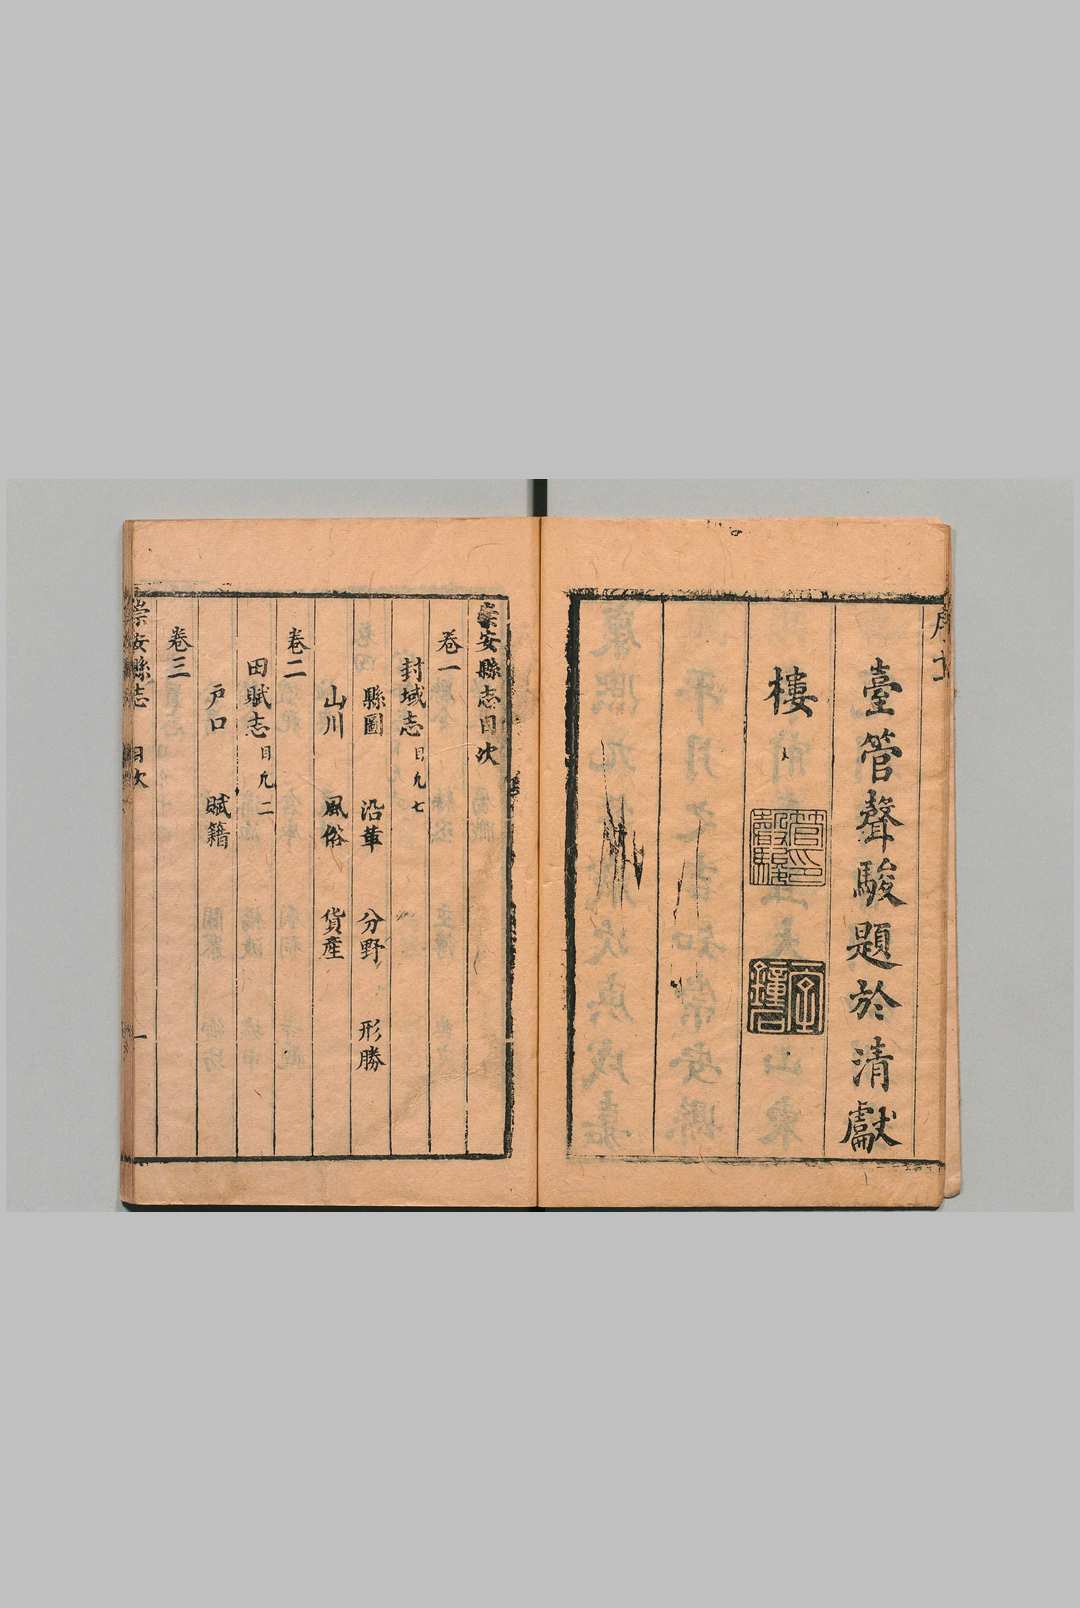 臺管聲駿題於清獻
樓
管聲駿印
崇安縣志目次
卷一
封域志目凡七
縣圖 沿革 分野 形勝
山川 風俗 貨產
卷二
田賦志目凡二
戶口 賦籍
卷三
崇安縣志 目次 一